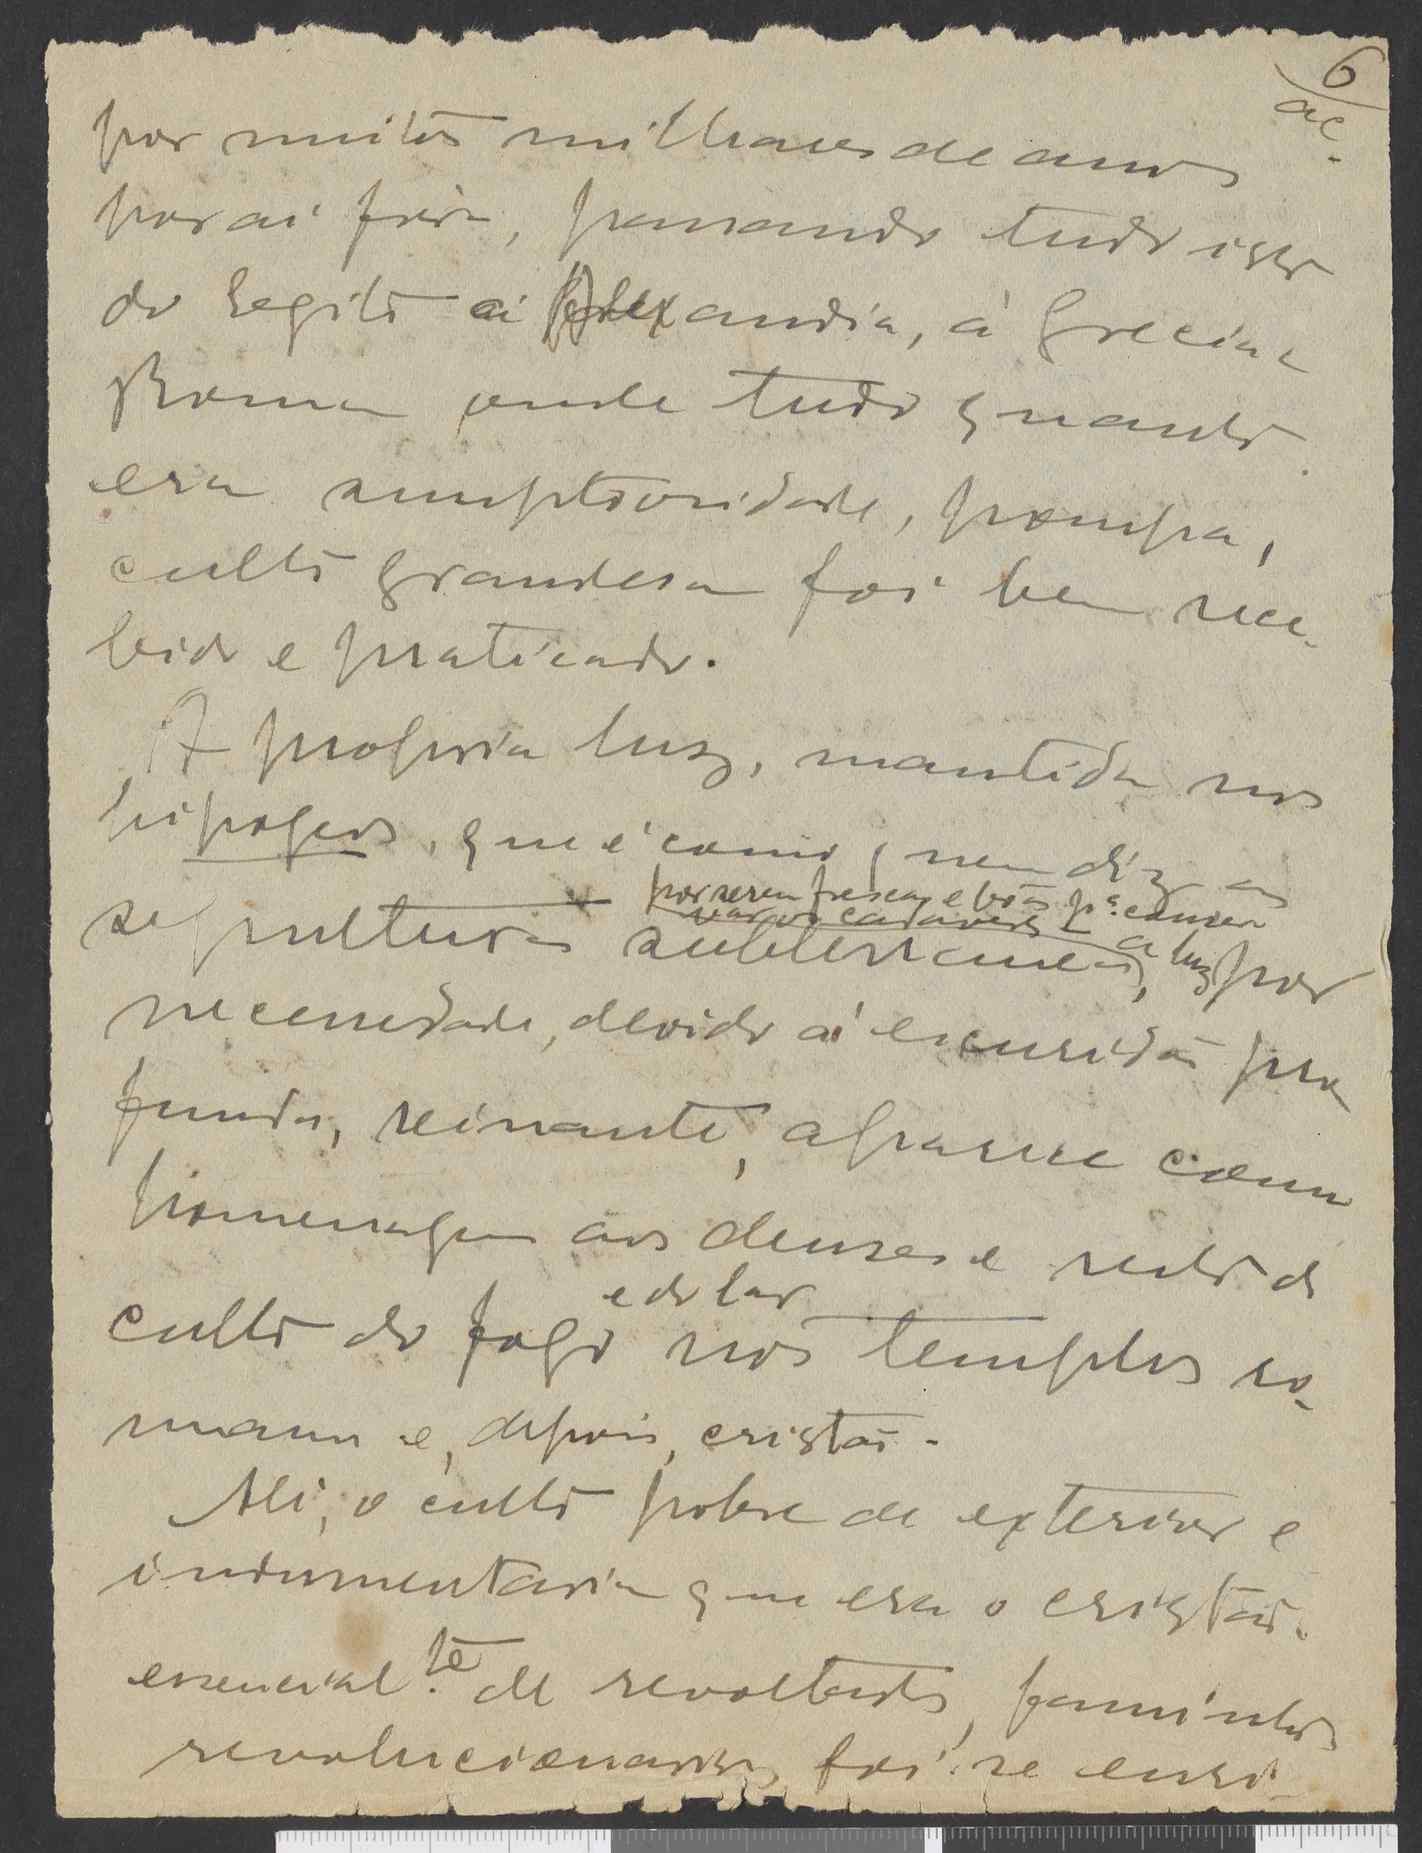 6
ac.
por muitos milhares de anos
por ai fóra, passando tudo isso
do Egito á Alexandria, á Grecia e
Roma onde tudo quanto
era sumptuosidade, pompa,
culto grandesa foi bem rece-
bido e praticado.
A propria luz, mantida nos
hipogeos, que é como quem diz as
por serem frescas e bôas pª. conser
var os cadaveres
sepulturas subterraneas, a luz por
necessidade, devido á escuridão pro
funda, reinante, aparece como
homenagem aos deuses e resto do
e do lar
culto do fogo nos templos ro-
manos e, depois, cristãos.
Ali, o culto pobre de exterior e
indumentaria que era o cristão.
essencial.te de revoltados, famintos
revolucionarios, foi-se enri-